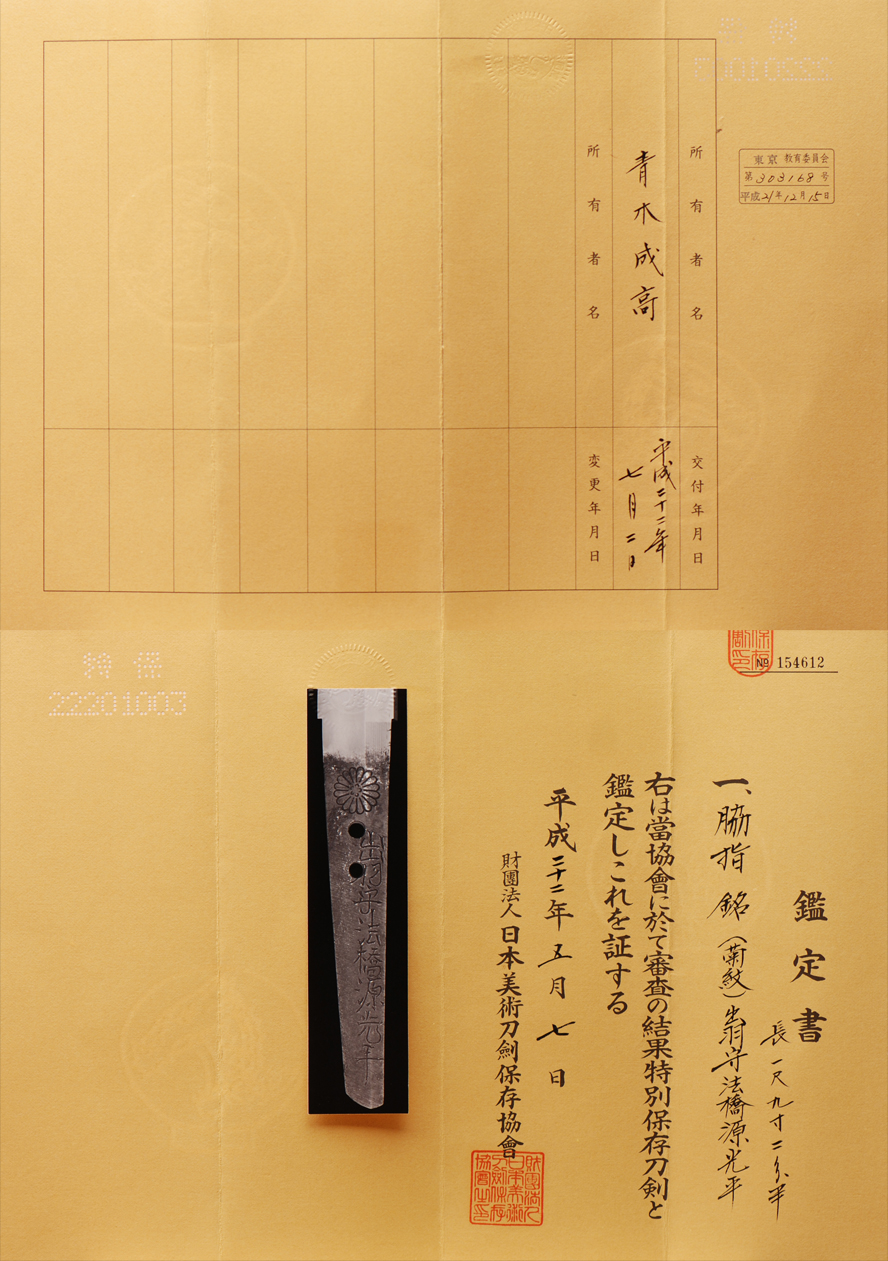 東京 教育委員会
第303168号
平成21年12月15日
所有者名
交付年月日
青木成高
平成二十二年
七月二日
所有者名
変更年月日
特保
22201003
№ 154612
鑑定書
長一尺九寸二分半
一、脇指 銘(菊紋)出羽守法橋源光平
右は當協會に於て審査の結果特別保存刀剣と
鑑定しこれを証する
平成二十二年五月七日
財團法人 日本美術刀劍保存協會
財團法人日本美術刀劍保存協會之印
出羽守法橋源光平